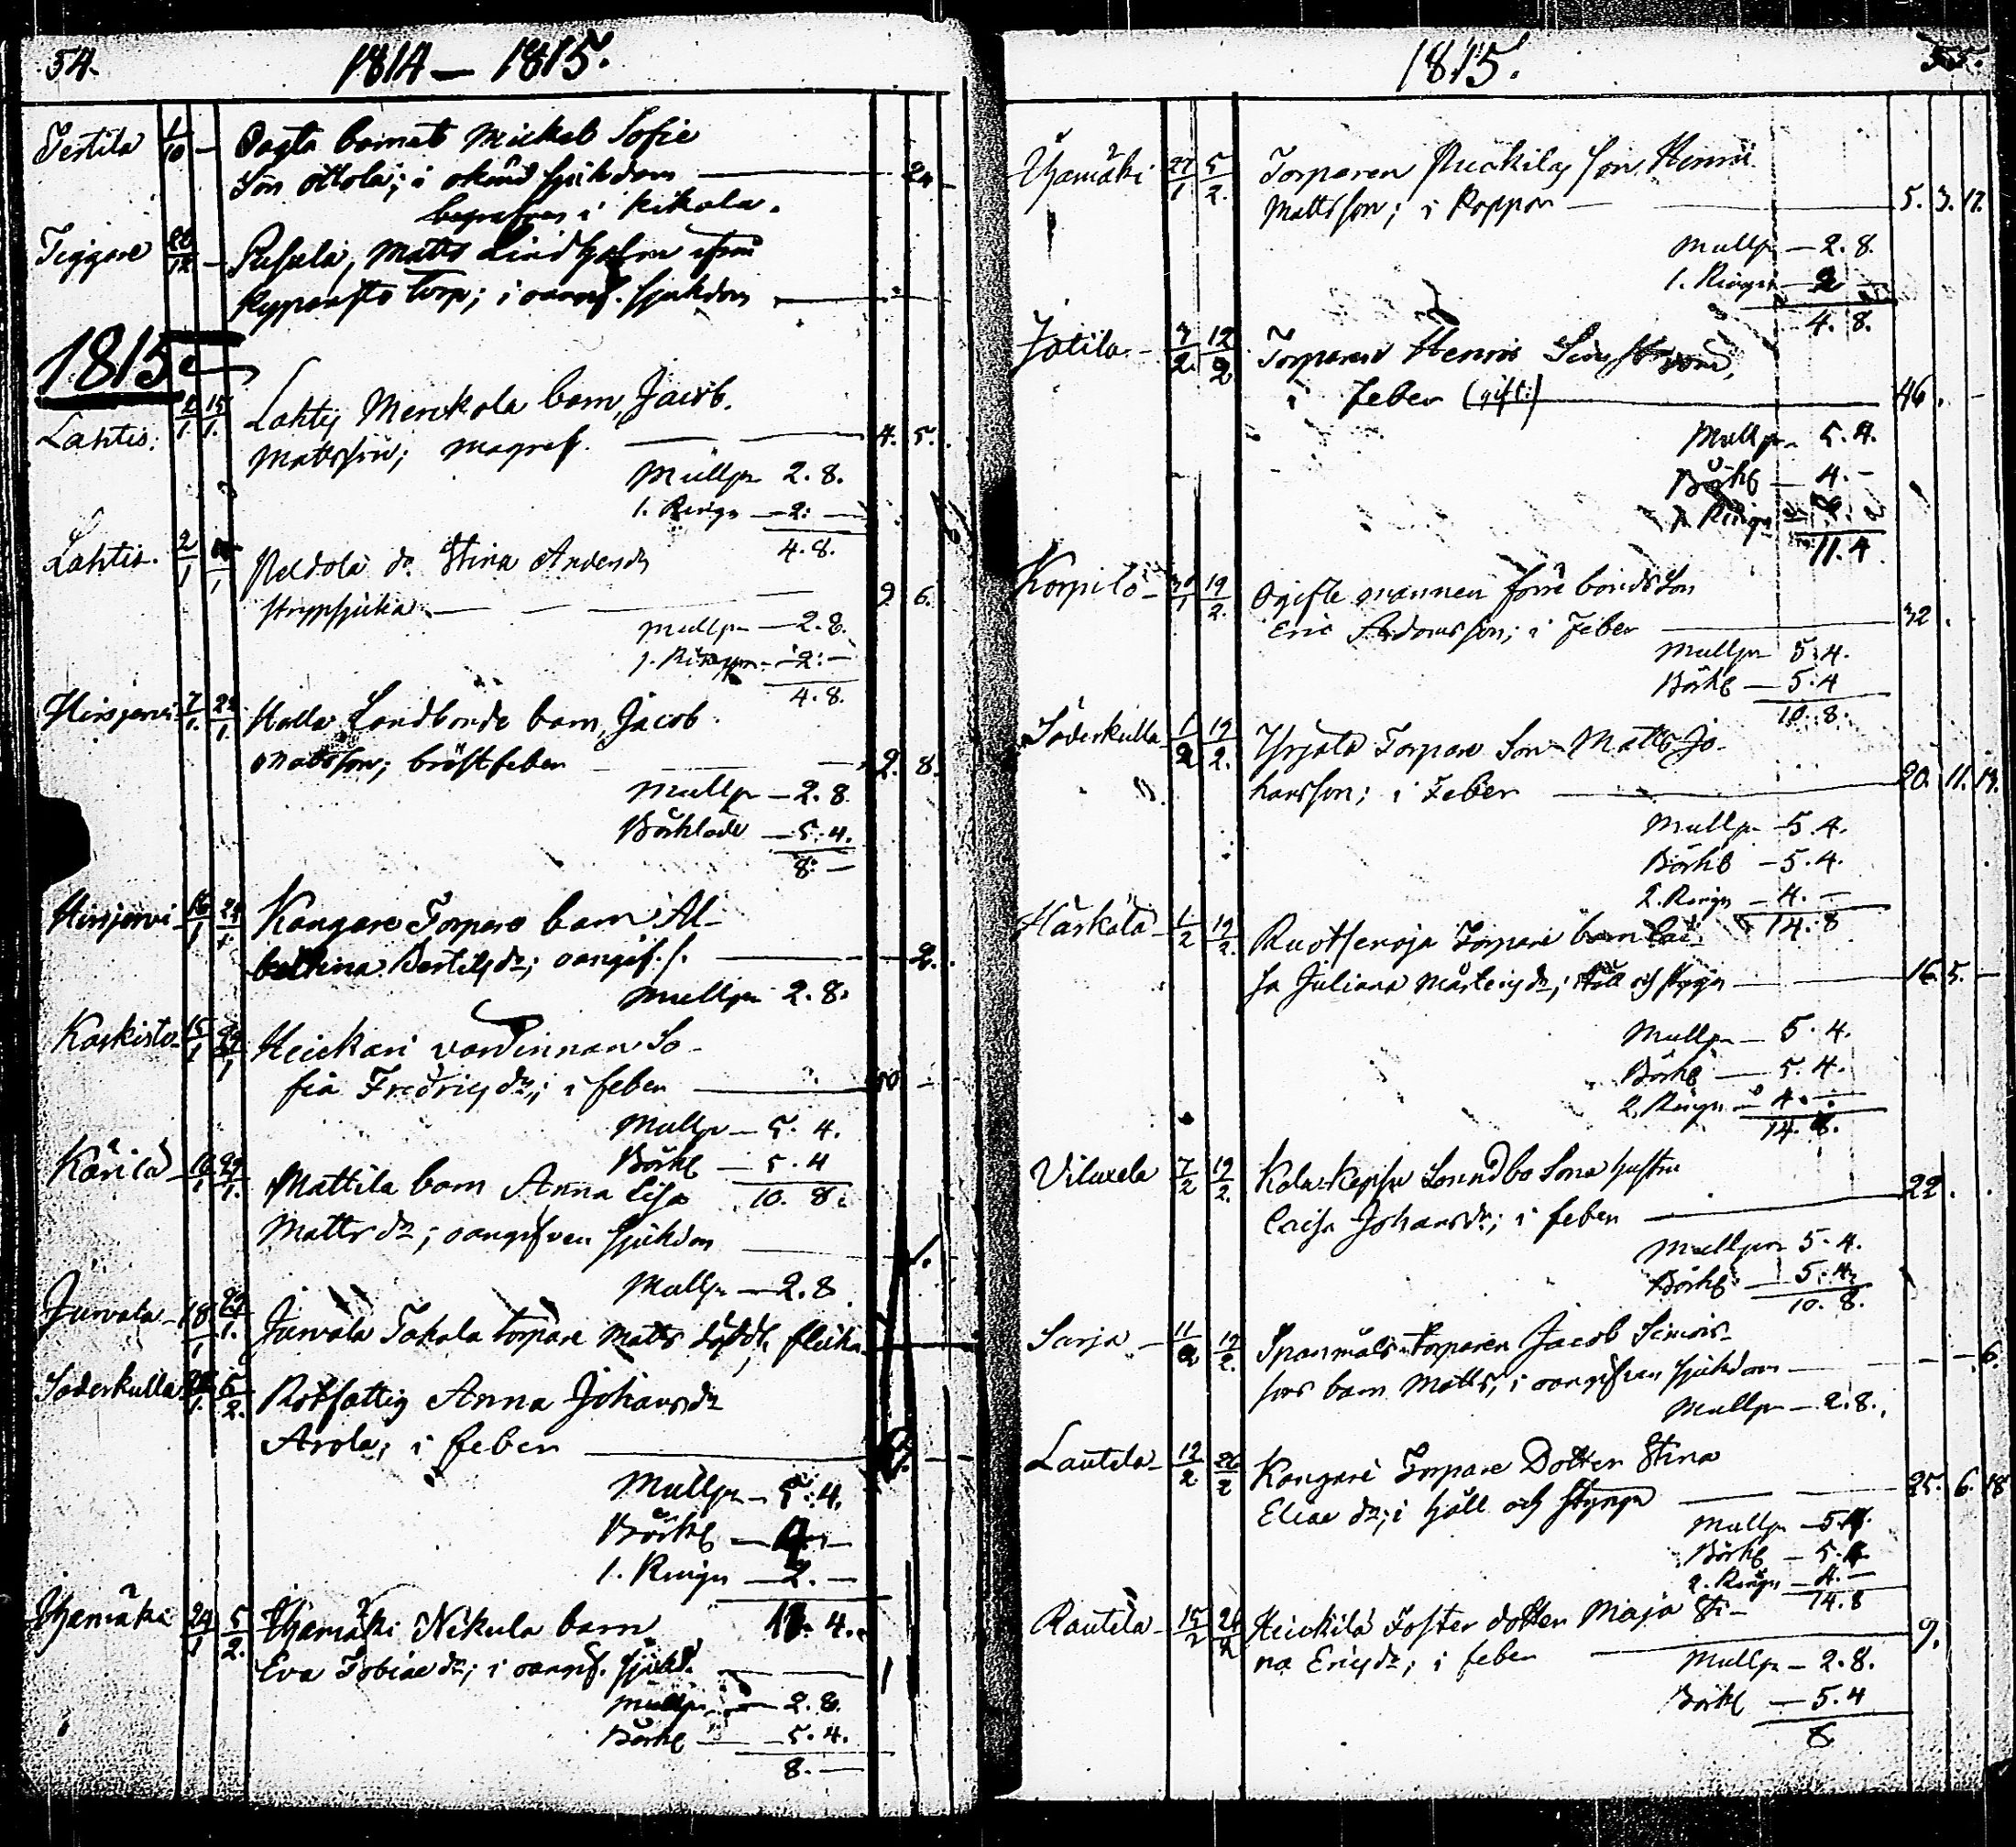 54. 1814 — 1815.
Testila 1/10 — barnet Mickel Sofie
Son ottola; i okänd sjukdom — 24 —
begrafven i Kikala.
Tiggare 26/12 — Pusula, Matts Lindholm ifrån
torp; i oangif. sjukdom — —
1815
Lahtis. 1/1 15/1 Lahtis Menkola barn, Jacob
Mattsson; magref. — 4. 5.
Mullpr 2. 8.
1. Ringn — 2: —
4. 8.
Lahtis. 2/1 Peldola dr. Stina Andersdr
strypsjuka — 9. 6.
Mullpr — 2. 8.
1. Ringn — 2: —
4. 8.
Hirsjervi 7/1. 22/1. Halla Landbonde barn, Jacob
Matsson; bröstfeber — 2. 8.
Mullpr — 2. 8
Bårklade — 5. 4.
8: —
Hirsjervi 16/1 Kangare Torpare barn Al-
bertina Bertilsdr; oangif. s. — 2.
Mullpr 2. 8.
Koskisto 15/1 Heickari värdinnan So-
fia Fredricsdr; i feber — 50 —
Mullpr — 5. 4.
Bårkl — 5. 4
10. 8.
Kärilä Mattila barn Anna Lisa
Mattsdr; oangifven sjukdom —
Mullpr — 2. 8
Juvvala 18/1 Juvvala Tokola torpare Matts dödf. flicka
Söderkulla 5/2. Rotfattig Anna Johansdr
Arola; i feber —
Mullpr — 5. 4.
Bårkl — 4. —
1. Ringn — 2. —
11. 4.
Yltamäki 24/1 5/2. Yltamäki Nikula barn
Eva Tobiaedr; i oangif. sjukd. — 1
Mullpr — 2. 8.
Bårkl — 5. 4.
8. —
1815. 55.
Yltamäki 27/1 5/2. Torparen Ruckilas son Henric
Mattsson; i Koppor — 5. 3. 17.
Mullpr — 2. 8.
1. Ringn — 2 —
4. 8.
Jatila 3/2 12/2 Torparen Henric
i feber (gift) — 46. —
Mullpr 5. 4.
Bårkl — 4. —
Ringn
11. 4
Korpilå 30/1 19/2. Ogifte mannen förre bonds son
Eric Adamsson; i Feber — 32.
Mullpr 5. 4.
Bårkl — 5. 4
10. 8.
Söderkulla 1/2 19/2. Yrjälä Torpare Son Matts Jo-
hansson; i Feber — 20. 11. 13.
Mullpr — 5. 4.
Bårkl — 5. 4.
2. Ringn — 4. —
14. 8
Härkälä 1/2 19/2. Ruotsenoja Torpare barn Cai-
sa Juliana Mårtensdr; håll och styng — 16. 5. —
Mullpr — 5. 4.
Bårkl — 5. 4.
2. Ringn — 4. —
14. 8.
Viluxela 7/2 19/2. Landbo Sons hustru
Caisa Johansdr; i feber — 22.
Mullpr 5. 4.
Bårkl — 5. 4.
10. 8.
Sarja — 11/2 19/2. Spanmåls-torparen Jacob Simons-
sons barn Matts; i oangifven sjukdom — 6.
Mullpr — 2. 8.
Lautela — 12/2 26/2 Kangari Torpare Dotter Stina
Eliae dr; i håll och styng — 25. 6. 18
Mullpr — 5. 4.
Bårkl — 5. 4
2. Ringn — 4. —
14. 8
Rautela — 15/2 26/2 Heickilä Foster dotter Maja Sti-
na Ericsdr; i feber — 9.
Mullpr — 2. 8.
Bårkl — 5. 4
8